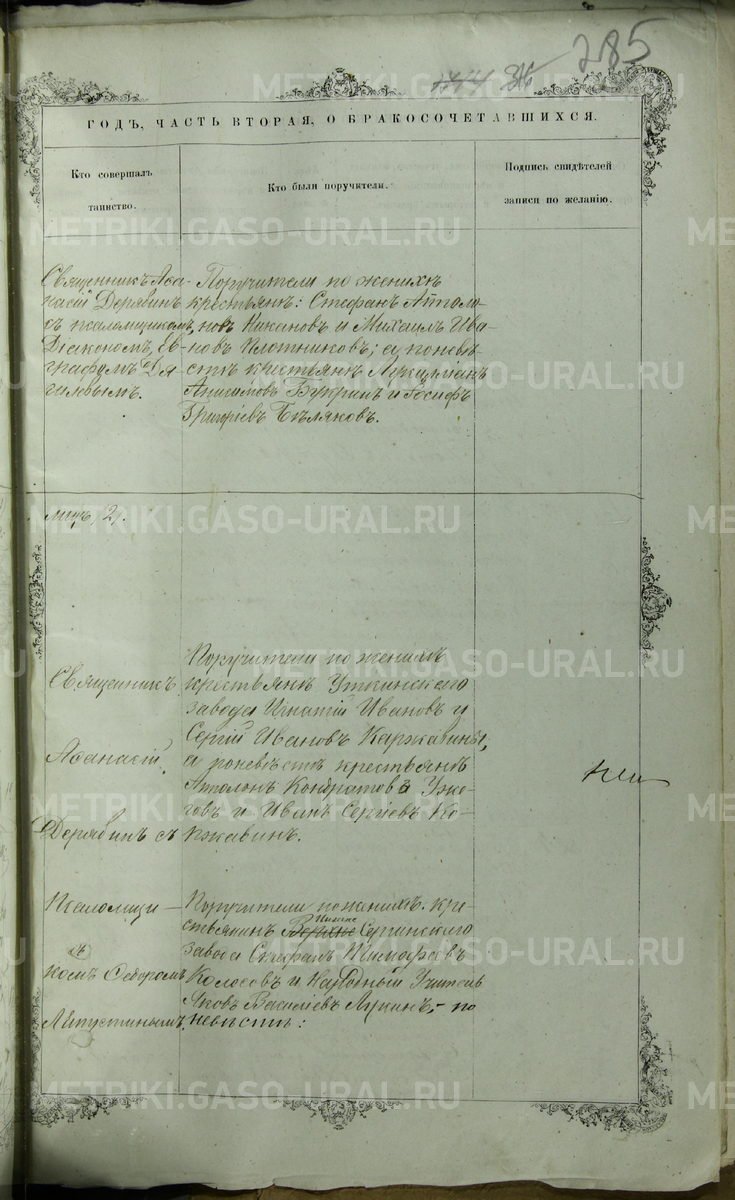 285
1414 316
ГОДЪ, ЧАСТЬ ВТОРАЯ, О БРАКОСОЧЕТАВШИХСЯ.
Кто совершалъ
таинство.
Кто были поручители.
Подпись свидѣтелей
записи по желанію.
Священникъ Аѳа-
насій Дерябинъ
съ псаломщикомъ
Діакономъ Ев-
графомъ
Поручители по женихѣ
крестьяне: Стефанъ Аполо-
новъ Никановъ и Михаилъ Ива-
новъ Плотниковъ; а по невѣ-
стѣ крестьяне
Букринъ и Іосифъ
Григорьевъ Бѣляковъ.
Священникъ
Аѳанасій
Дерябинъ съ
Псаломщи-
комъ Ѳедоромъ
Поручители по женихѣ
крестьяне Уткинскаго
завода Игнатій Ивановъ и
Сергій Ивановъ Каржавины,
а по невѣстѣ крестьяне
Аполонъ Кондратовъ Ужо-
говъ и Иванъ Сергіевъ Ко-
ржавинъ.
Поручители по женихѣ: кре-
стьянинъ Верхне Нижне Сергинскаго
завода Стефанъ
Колосовъ и Народный Учитель
Яковъ Васильевъ Лукинъ, - по
невѣстѣ:
METRIKI.GASO-URAL.RU